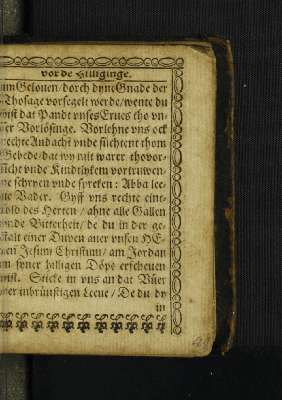 vor de Hilliginge.
im Gelouen/ dorch dyne Gnade der
Thosage vorsegelt werde/ wente du
bist dat Pandt vnses Erues tho vn-
ser Vorlösinge. Vorlehne vns ock
rechte Andacht vnde süchtent thom
Gebede/ dat wy mit warer thovor-
sicht vnde Kindtlykem vortruwen
schryen vnde spreken: Abba lee-
ue Vader. Gyff vns rechte eint-
folt des Herten/ ahne alle Gallen
vnde Bitterheit/ de du in der ge-
stalt einer Duven auer vnsen HE-
ren Jesum Christum/ am Jordan
syner hilligen Döpe erschenen
bist. Sticke in vns an dat Vüer
der inbrünstigen Leeue/ De du dy
in